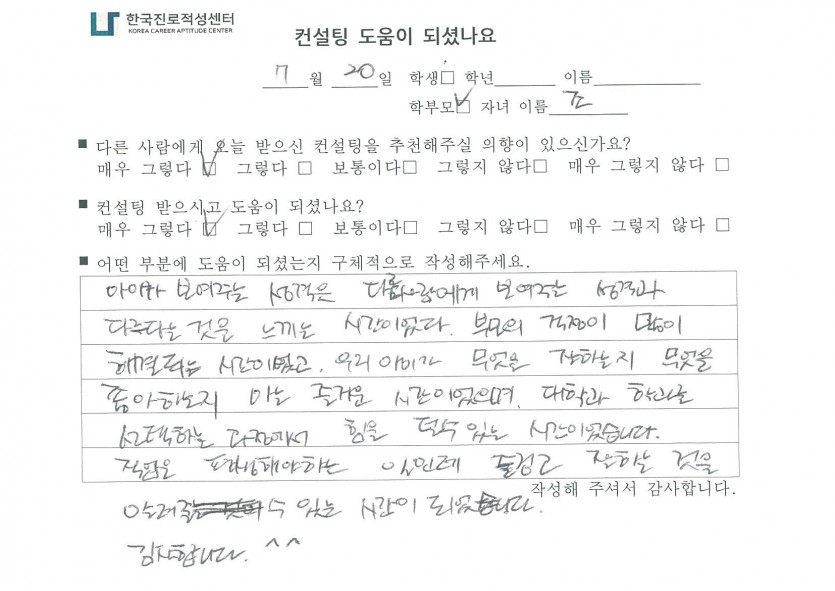 한국진로적성센터
KOREA CAREER APTITUDE CENTER
컨설팅 도움이 되셨나요
7월 20일 학생□ 학년 이름
학부모☑ 자녀 이름 조
■ 다른 사람에게 오늘 받으신 컨설팅을 추천해주실 의향이 있으신가요?
매우 그렇다 ☑ 그렇다 □ 보통이다□ 그렇지 않다□ 매우 그렇지 않다 □
■ 컨설팅 받으시고 도움이 되셨나요?
매우 그렇다 ☑ 그렇다 □ 보통이다□ 그렇지 않다□ 매우 그렇지 않다 □
■ 어떤 부분에 도움이 되셨는지 구체적으로 작성해주세요.
아이가 보여주는 성격은 다른사람에게 보여주는 성격과
다르다는 것을 느끼는 시간이었다. 부모의 걱정이 많이
해결되는 시간이였고, 우리 아이가 무엇을 잘하는지 무엇을
좋아하는지 아는 즐거운 시간이었으며, 대학과 학과를
선택하는 과정에서 힘을 덜수 있는 시간이었습니다.
직업은 평생해야하는 일인데 즐겁고 잘하는 것을
작성해 주셔서 감사합니다.
수 있는 시간이 되었습니다.
감사합니다. ^^